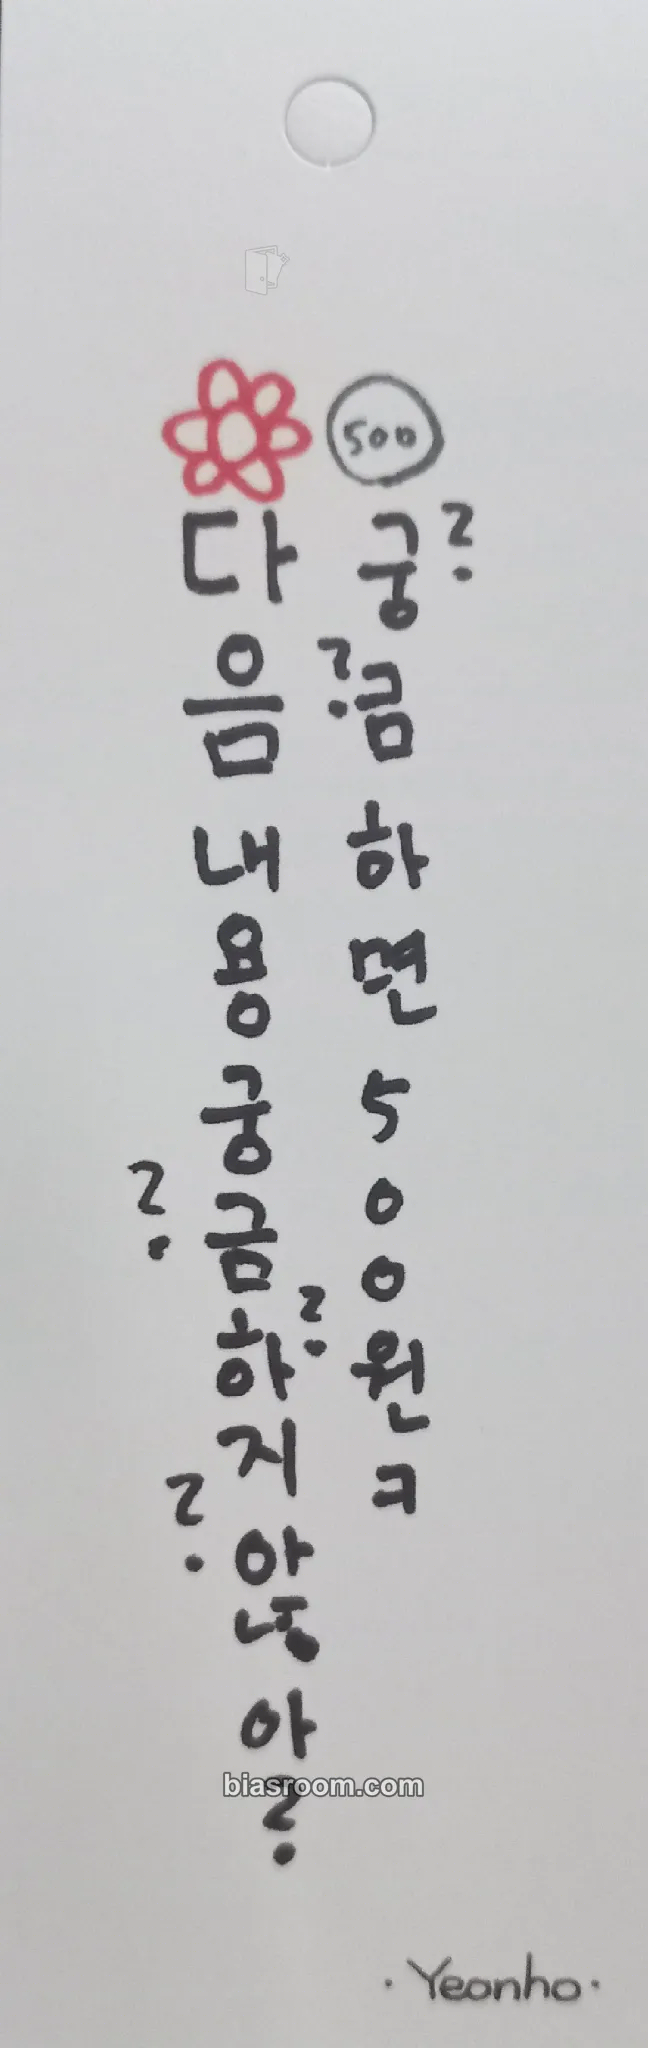 다음내용궁금하지않아?
500
궁금하면500원ㅋ
biasroom.com
·Yeonho·